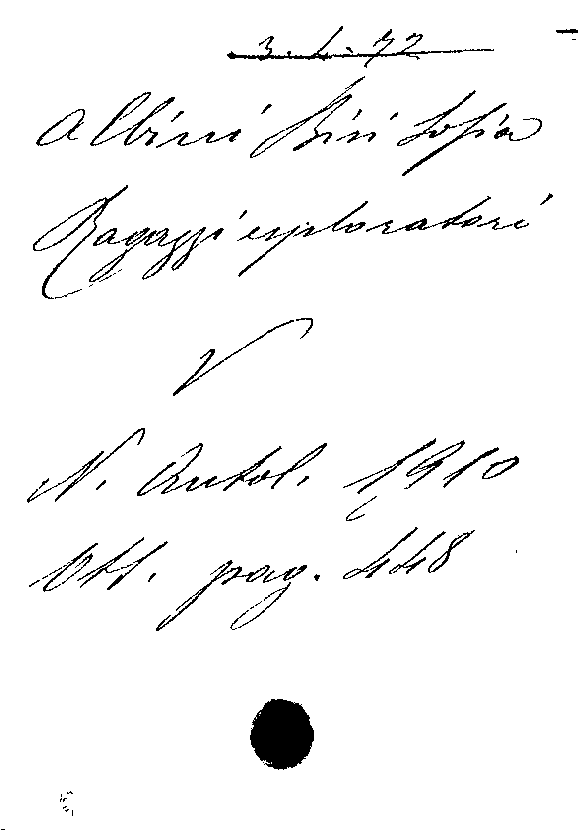 3. L. 72
Albini Bisi Sofia
Ragazzi esploratori
V
N. Antol. 1910
Ott. pag. 448